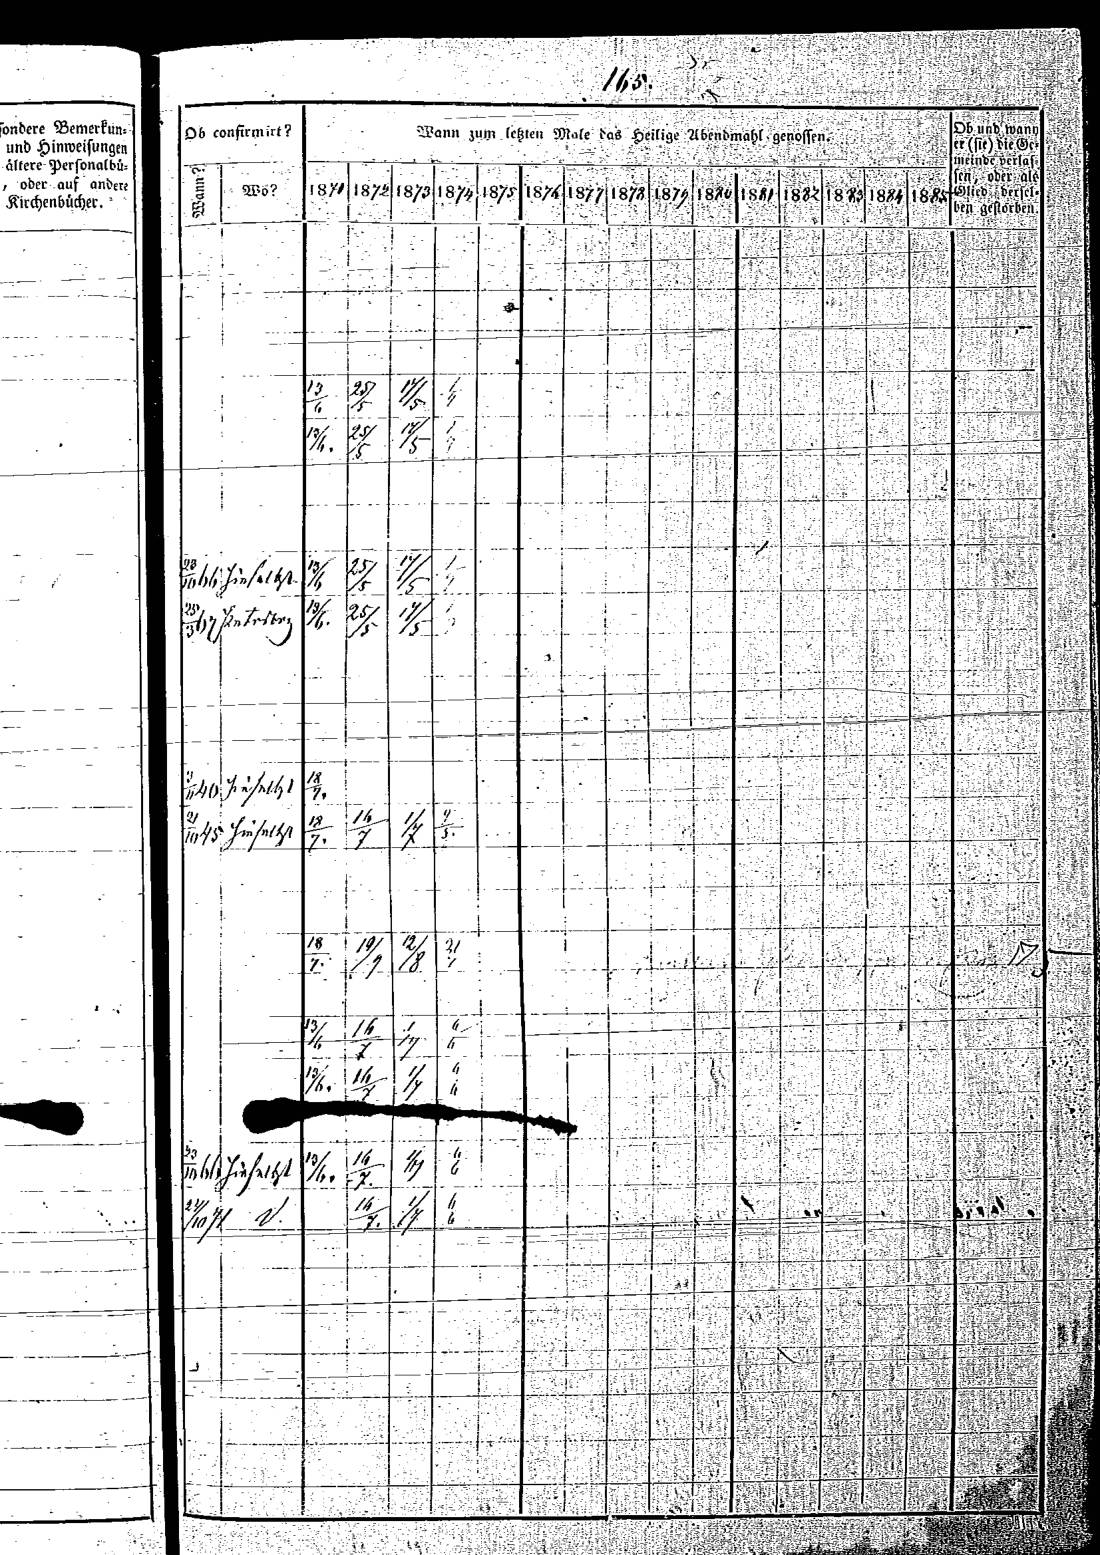 165.
sondere Bemerkun-
und Hinweisungen
ältere Personalbü-
, oder auf andere
Kirchenbücher.
Ob confirmirt?
Wann zum letzten Male das Heilige Abendmahl genossen.
Ob und wann
er (sie) die Ge-
meinde verlas-
sen, oder als
Glied dersel-
ben gestorben.
Wann? Wo? 1871 1872 1873 1874 1875 1876 1877 1878 1879 1880 1881 1882 1883 1884 1885
13/6 25/5 17/5
13/6. 25/5 17/5
23/10 66 hieselbst 13/6 25/5 17/5
25/3 67 13/6. 25/5 17/5
40 hieselbst 18/7.
21/10 45 hieselbst 18/7. 16/7 1/7
18/7. 19/9 12/8 21/7
13/6 16/7 1/7 6/6
13/6. 16/7 1/7 6/6
66 hieselbst 13/6. 16/7. 1/7 6/6
16/7. 1/7 6/6